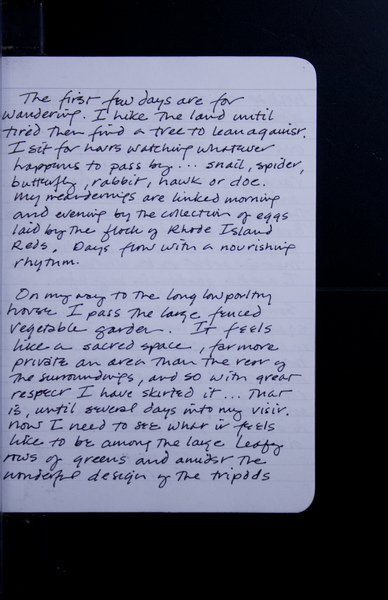 The first few days are for
wandering. I hike the land until
tired then find a tree to lean against.
I sit for hours watching whatever
happens to pass by... snail, spider,
butterfly, rabbit, hawk or doe.
My meanderings are linked morning
and evening by the collection of eggs
laid by the flock of Rhode Island
Reds. Days flow with a nourishing
rhythm.
On my way to the long low poultry
house I pass the large fenced
vegetable garden. It feels
like a sacred space, far more
private an area than the rest of
the surroundings, and so with great
respect I have skirted it... That
is, until several days into my visit.
Now I need to see what it feels
like to be among the large leafy
rows of greens and amidst the
wonderful design of the tripods